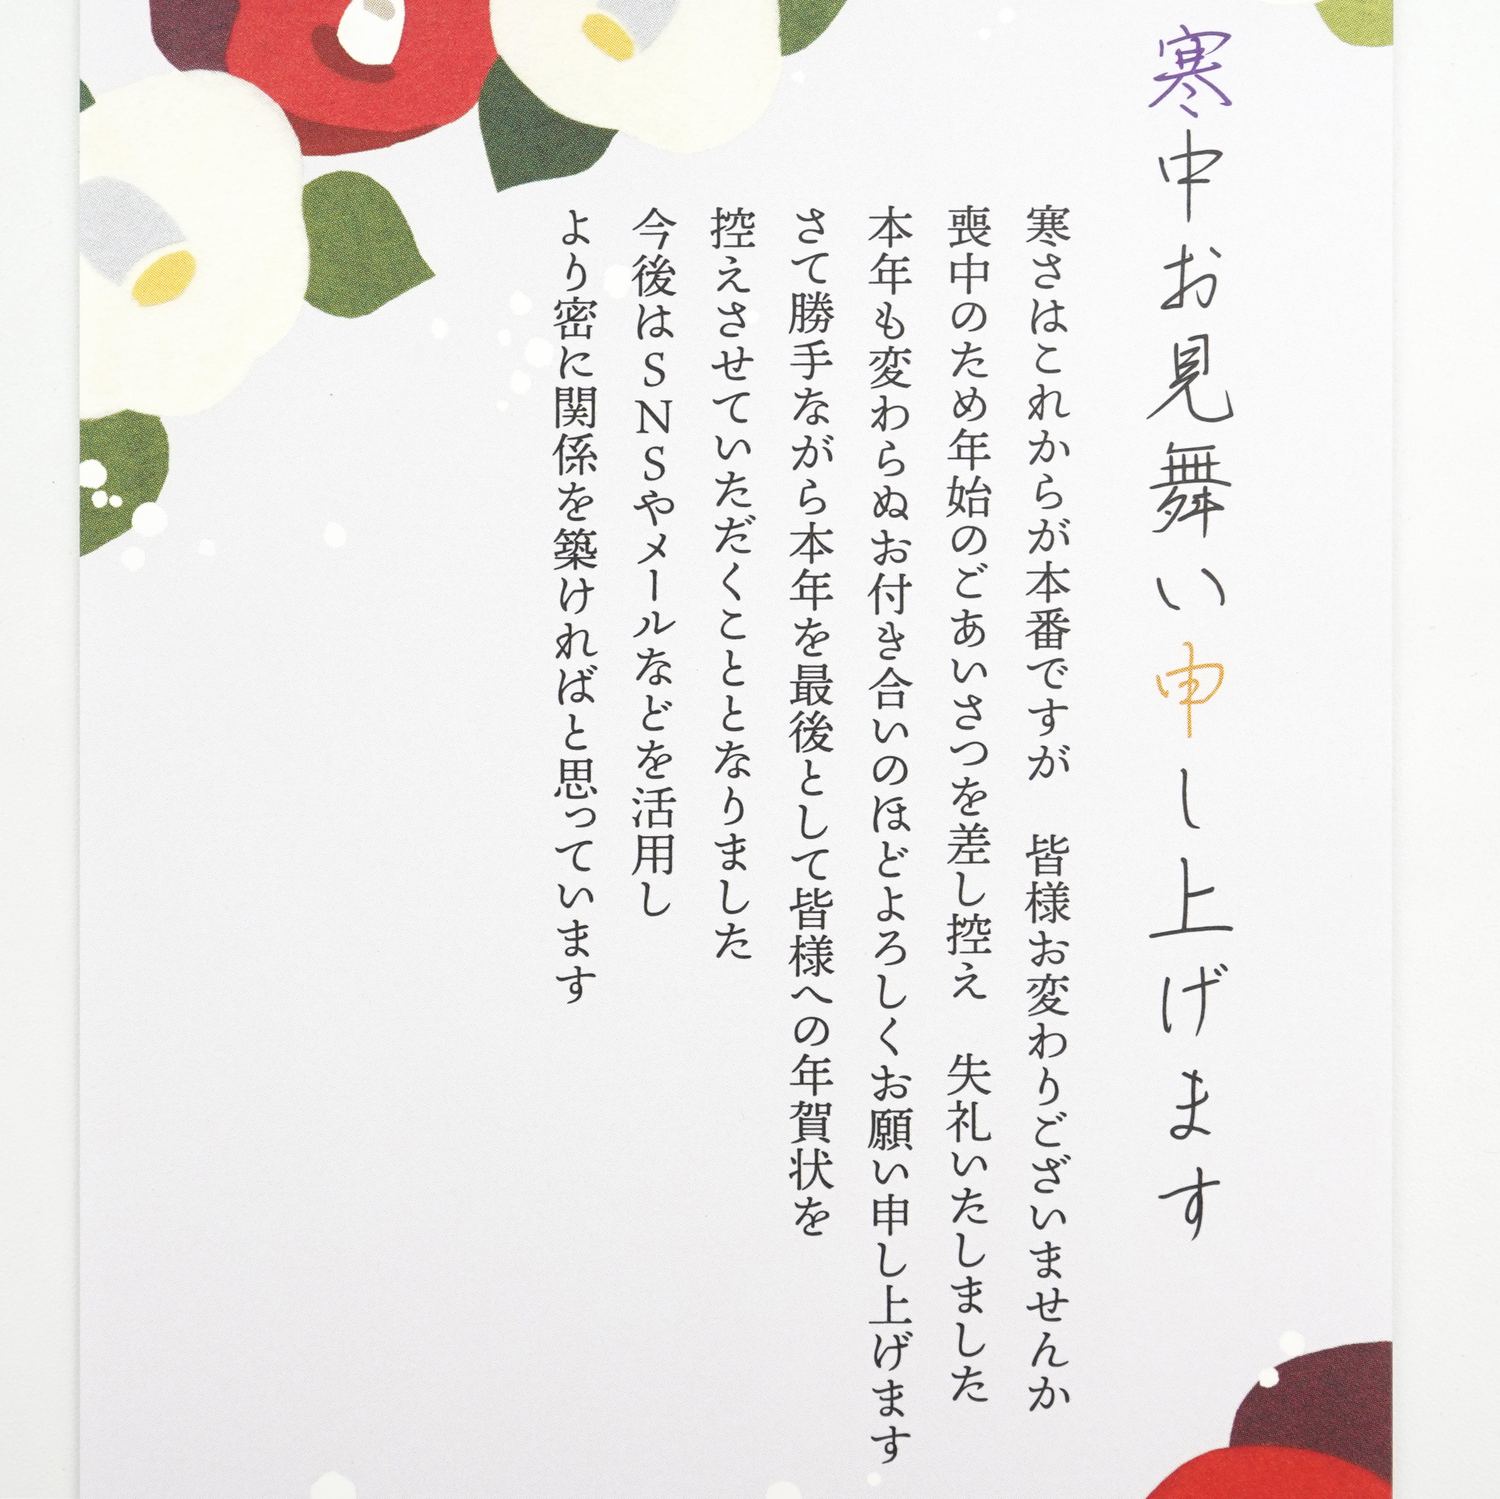 寒中お見舞い申し上げます
寒さはこれからが本番ですが　皆様お変わりございませんか
喪中のため年始のごあいさつを差し控え　失礼いたしました
本年も変わらぬお付き合いのほどよろしくお願い申し上げます
さて勝手ながら本年を最後として皆様への年賀状を
控えさせていただくこととなりました
今後はSNSやメールなどを活用し
より密に関係を築ければと思っています